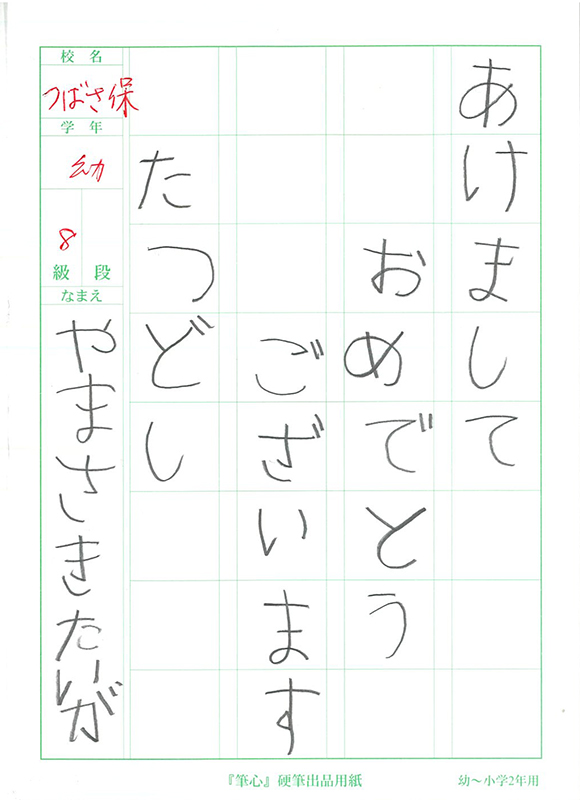 あけまして
おめでとう
ございます
たつどし
校名
つばさ保
学年
幼
8
級 段
なまえ
やまさきたいが
『筆心』硬筆出品用紙
幼〜小学2年用